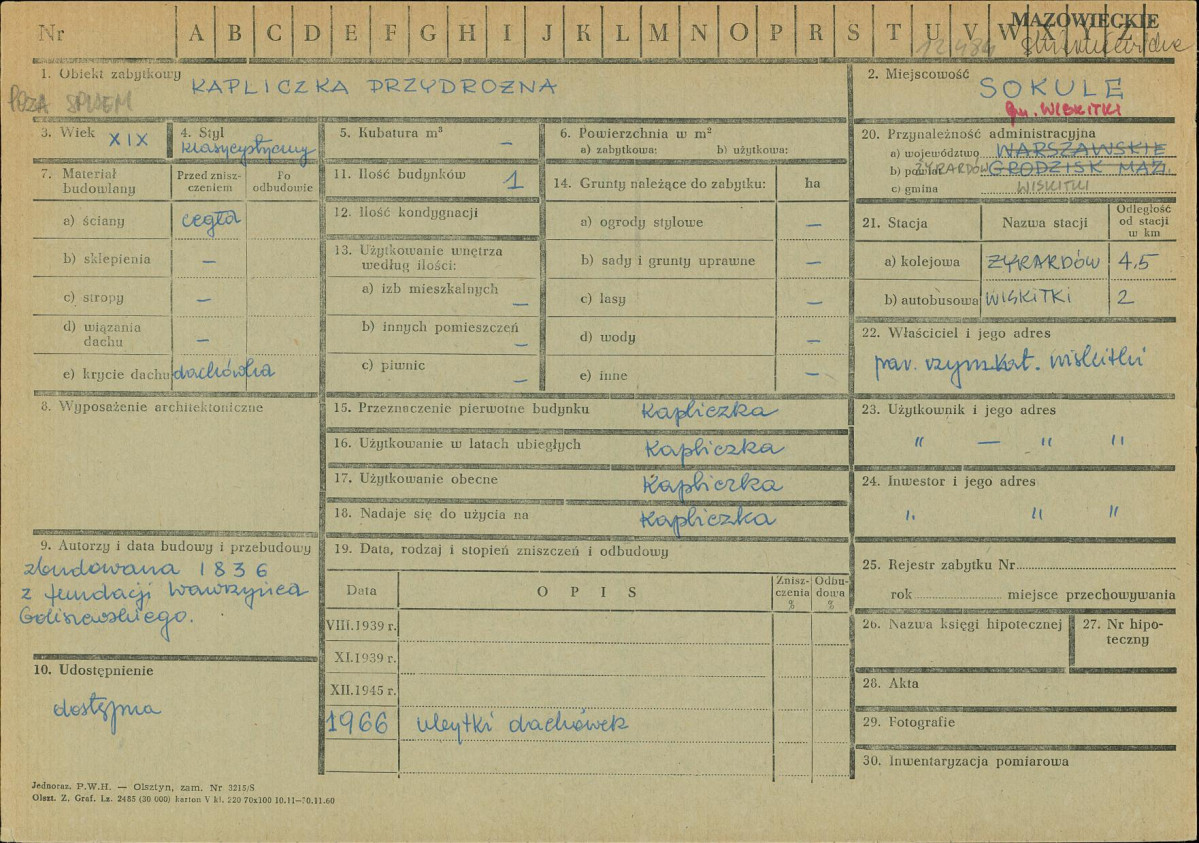 Nr A B C D E F G H I J K L M N O P R S T U V W X Y Z
MAZOWIECKIE
12484
1. Obiekt zabytkowy KAPLICZKA PRZYDROŻNA
POZA SPISEM
2. Miejscowość SOKULE
gm. WISKITKI
3. Wiek XIX
4. Styl klasycystyczny
5. Kubatura m³ —
6. Powierzchnia w m²
a) zabytkowa: b) użytkowa:
7. Materiał budowlany
Przed zniszczeniem
Po odbudowie
a) ściany cegła
b) sklepienia —
c) stropy —
d) wiązania dachu —
e) krycie dachu dachówka
8. Wyposażenie architektoniczne
9. Autorzy i data budowy i przebudowy
zbudowana 1836
z fundacji Wawrzyńca
10. Udostępnienie
dostępna
11. Ilość budynków 1
12. Ilość kondygnacji
13. Użytkowanie wnętrza
według ilości:
a) izb mieszkalnych —
b) innych pomieszczeń —
c) piwnic —
14. Grunty należące do zabytku: ha
a) ogrody stylowe —
b) sady i grunty uprawne —
c) lasy —
d) wody —
e) inne —
15. Przeznaczenie pierwotne budynku Kapliczka
16. Użytkowanie w latach ubiegłych Kapliczka
17. Użytkowanie obecne Kapliczka
18. Nadaje się do użycia na Kapliczka
19. Data, rodzaj i stopień zniszczeń i odbudowy
Data OPIS Zniszczenia % Odbudowa %
VIII.1939 r.
XI.1939 r.
XII.1945 r.
1966 ubytki dachówek
20. Przynależność administracyjna
a) województwo WARSZAWSKIE
b) powiat ŻYRARDÓW GRODZISK MAZ.
c) gmina WISKITKI
21. Stacja Nazwa stacji Odległość od stacji w km
a) kolejowa ŻYRARDÓW 4,5
b) autobusowa WISKITKI 2
22. Właściciel i jego adres
par. rzym.kat. Wiskitki
23. Użytkownik i jego adres
" — " "
24. Inwestor i jego adres
" " "
25. Rejestr zabytku Nr
rok miejsce przechowywania
26. Nazwa księgi hipotecznej
27. Nr hipoteczny
28. Akta
29. Fotografie
30. Inwentaryzacja pomiarowa
Jednoraz. P.W.H. — Olsztyn, zam. Nr 3215/S
Olszt. Z. Graf. Lz. 2485 (30 000) karton V kl. 220 70x100 10.11—70.11.60